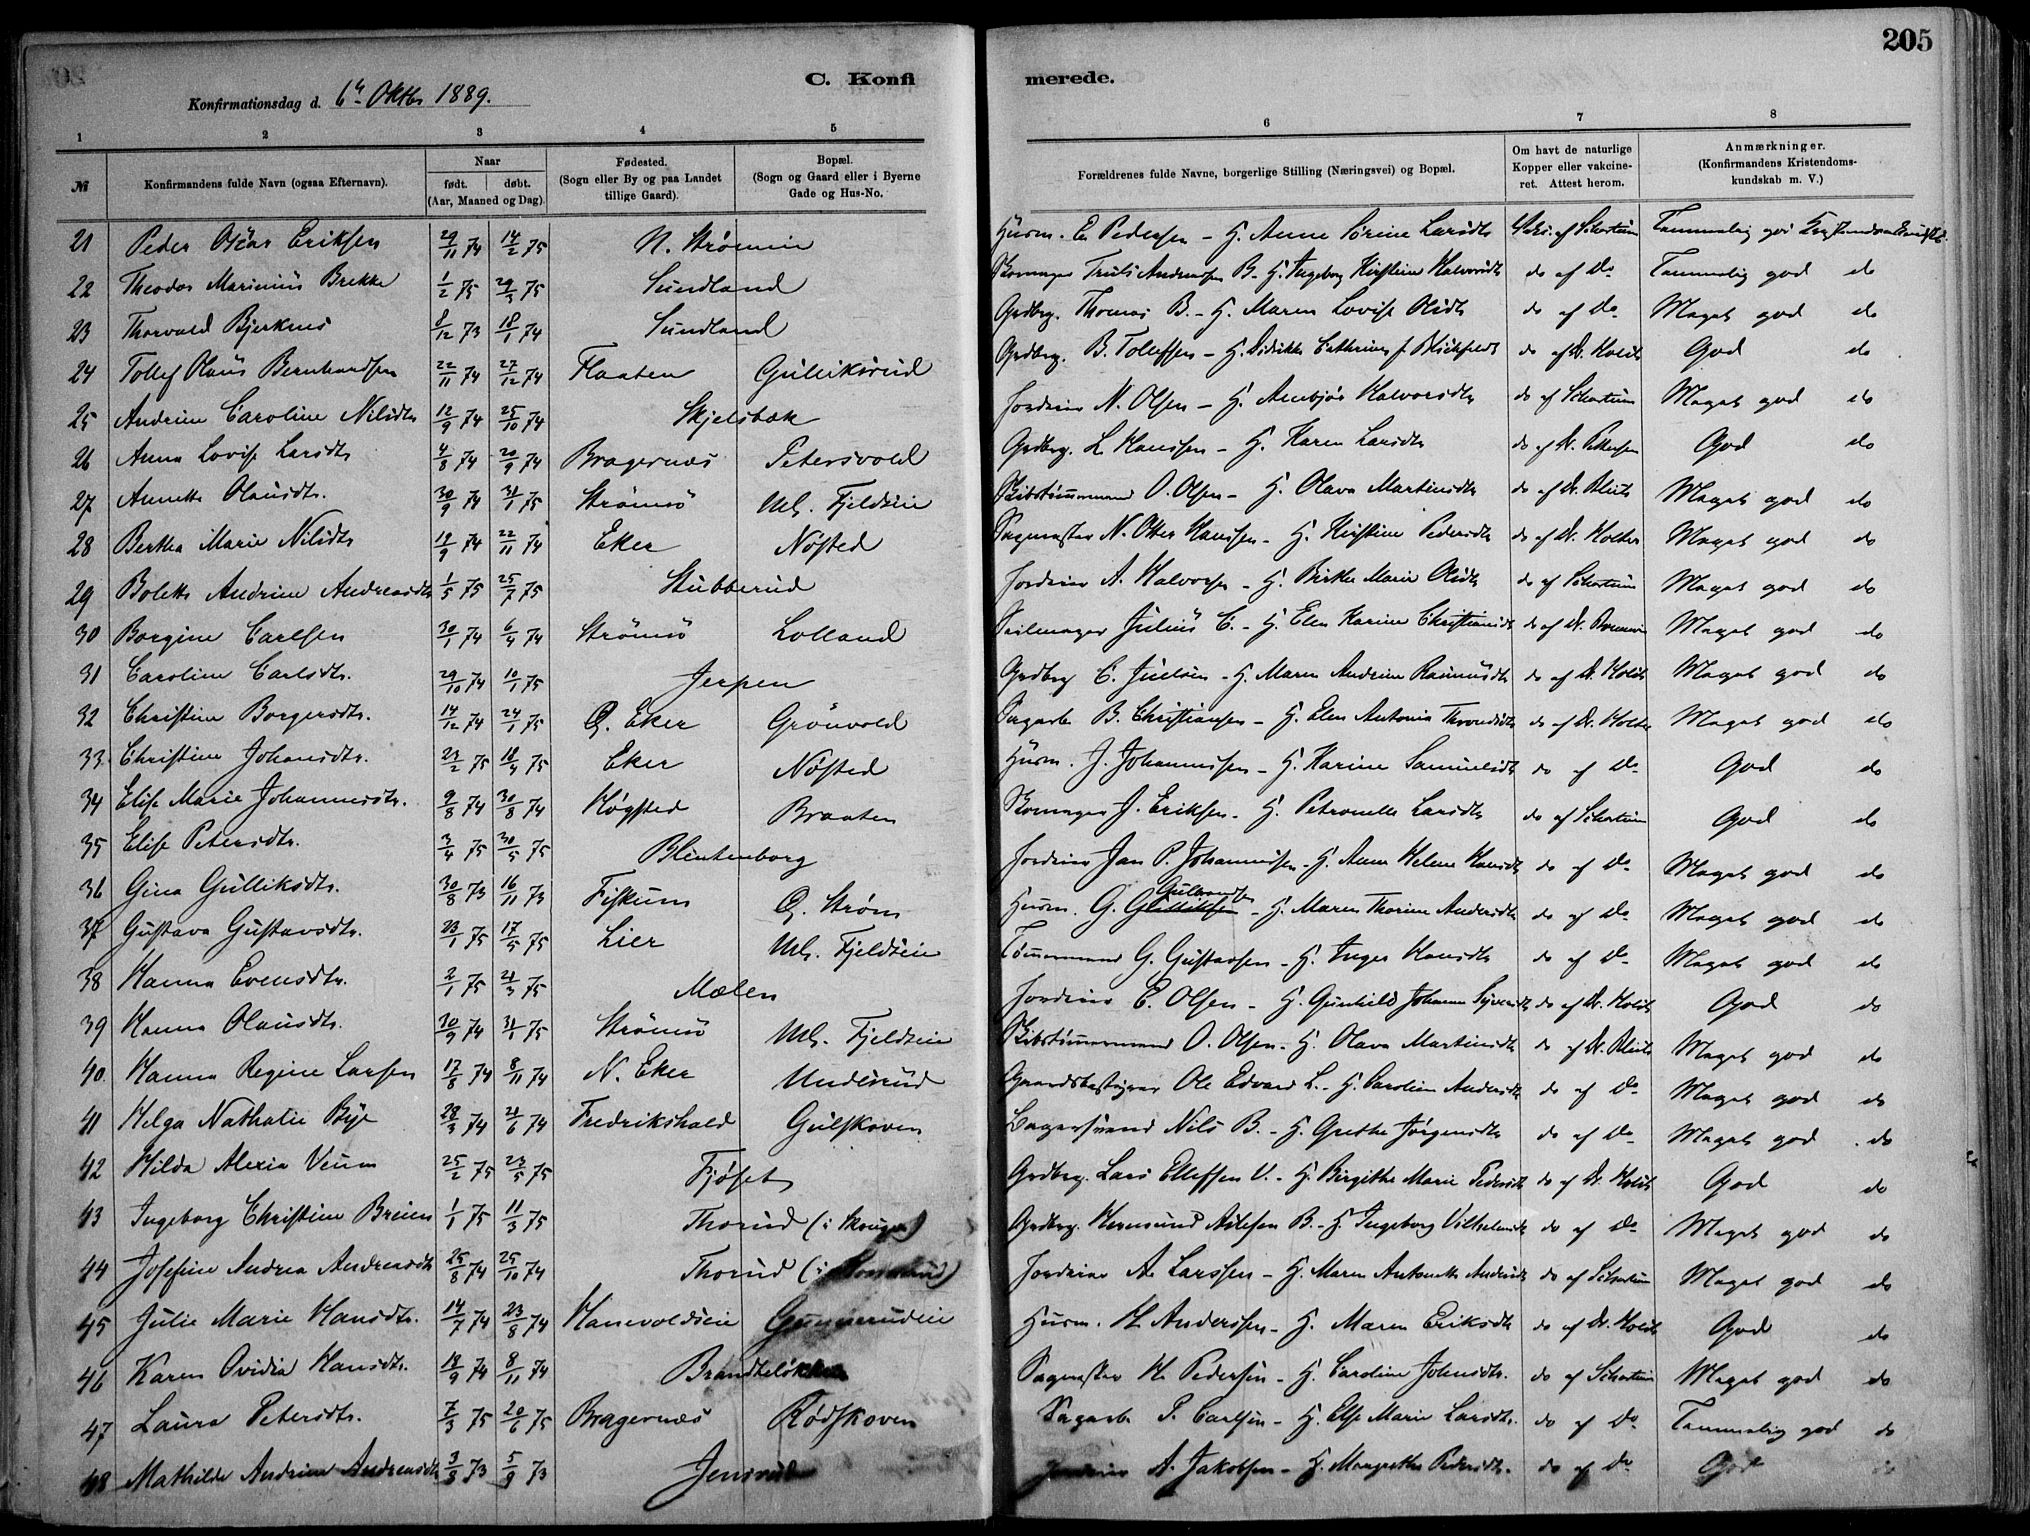 205
C. Konfi merede.
Konfirmationsdag d. 6te Oktbr 1889.
1 2 3 4 5 6 7 8
№ Konfirmandens fulde Navn (ogsaa Efternavn). Naar født. døbt. (Aar, Maaned og Dag). Fødested. (Sogn eller By og paa Landet tillige Gaard). Bopæl. (Sogn og Gaard eller i Byerne Gade og Hus-No. Forældrenes fulde Navne, borgerlige Stilling (Næringsvei) og Bopæl. Om havt de naturlige Kopper eller vakcineret. Attest herom. Anmærkninger. (Konfirmandens Kristendomskundskab m. V.)
21 Peder Oscar Eriksen 29/11 74 14/2 75 N. Strømm Husm. E. Pedersen – H. Anne Sørine Larsdtr af Schartum Temmelig god
22 Theodor Marinius Brekke 1/2 75 29/3 75 Sundland Skomager Truls Andersen B. – H. Ingeborg Kirstine Halvorsdtr do af Do Temmelig god do
23 Thorvald Bjerknes 8/12 73 18/1 74 Sundland Grdbrg. Thomas B. – H. Maren Lovise Olsdtr do af Do Meget god do
24 Tollef Olaus Bernhardsen 22/11 74 27/12 74 Flaaten Gulliksrud Grdbrg. B. Tollefsen – H. Didrikke Cathrine f. do af Dr. Holst God do
25 Andrine Caroline Nilsdtr 12/9 74 25/10 74 Skjelsbæk Jordeier N. Olsen – H. Annbjør Halvorsdtr do af Schartum Meget god do
26 Anna Lovise Larsdtr 4/8 74 20/9 74 Bragernæs Petersvold Grdbrg. L. Hanssen – H. Karen Larsdtr do af Dr. Pettersen God do
27 Annette Olausdtr. 30/9 74 31/1 75 Strømsö Ml. Fjeldseie Skibstømmermand O. Olsen – H. Olava Martinsdtr do af Dr. Meget god do
28 Bertha Marie Nilsdtr 19/9 74 22/11 74 Eker Nøsted Sagmester N. Otter Hanssen – H. Kirstine Pedersdtr do af Dr. Holter Meget god do
29 Bolette Andrine Andreasdtr 1/5 75 25/7 75 Stubberud Jordeier A. Halvorsen – H. Birthe Marie Olsdtr do af Schartum Meget god do
30 Borgine Carlsen 30/1 74 6/4 74 Strømsö Lolland Seilmager Julius C. – H. Elen Karine Christiansdtr do af Dr. Meget god do
31 Caroline Carlsdtr. 29/10 74 10/1 75 Jerpen Grdbrg C. Juelsen – H. Maren Andrine Rasmusdtr do af Dr. Holst Meget god do
32 Christine Borgersdtr. 14/12 74 24/1 75 Ø. Eker Grönvold Sagarb. B. Christiansen – H. Elen Antonia Throndsdtr do af Dr. Holter Meget god do
33 Christine Johansdtr. 23/2 75 18/4 75 Eker Nøsted Husm. J. Johannessen – H. Karine Samuelsdtr do af Do God do
34 Elise Marie Johannesdtr. 9/8 74 30/8 74 Høgsted Braaten Skomager J. Eriksen – H. Petronelle Larsdtr do af Schartum God do
35 Elise Petersdtr. 3/4 75 30/5 75 Blintenborg Jordeier Jan P. Johannessen – H. Anne Helene Hansdtr do af Do Meget god do
36 Gina Gulliksdtr. 30/8 73 16/11 73 Fiskum Ø. Strøm Husm. G. Gulliksen Gulbrandsen – H. Maren Thorine Andersdtr do af Do Meget god do
37 Gustava Gustavsdtr. 23/1 75 17/5 75 Lier Ml. Fjeldseie Tömmermand G. Gustavsen – H. Inger Hansdtr do af Do Meget god do
38 Hanna Evensdtr. 2/1 75 21/3 75 Mælen Jordeier E. Olsen – H. Gunhild Johanne Syversdtr do af Dr. Holst God do
39 Hanna Olausdtr. 30/9 74 31/1 75 Strømsö Ml. Fjeldseie Skibstömmermand O. Olsen – H. Olava Martinsdtr do af Dr. Meget god do
40 Hanna Regine Larsen 17/8 74 8/11 74 N. Eker Underrud Gaardsbestyrer Ole Edvard L. – H. Caroline Andersdtr do af Do Meget god do
41 Helga Nathalie Bye 28/3 74 21/6 74 Fredrikshald Gulskoven Nils B. – H. Grethe Jørgensdtr do af Do Meget god do
42 Hilda Alexia Veum 25/2 75 23/5 75 Fjøset Grdbrg. Lars Ellefsen V. – H. Birgithe Marie Pedersdtr do af Dr. Holst God do
43 Ingeborg Christine Breien 1/1 75 11/3 75 Thorud (i Skouger) Grdbrg. Hermund Aslesen B. – H. Ingeborg do af Do Meget god do
44 Josefine Andrea Andreasdtr 25/8 74 25/10 74 Thorud (i Jordeier A. Larssen – H. Maren Antonette Andersdtr do af Schartum Meget god do
45 Julie Marie Hansdtr. 14/7 74 23/8 74 Hanevoldseie Gunnerudeie Husm. H. Anderssen – H. Maren Eriksdtr do af Dr. Holst God do
46 Karen Ovidia Hansdtr. 18/9 74 8/11 74 Brandteløkken Sagmester H. Pedersen – H. Caroline Johnsdtr. do af Schartum Meget god do
47 Laura Petersdtr. 7/3 75 20/6 75 Bragernæs Rødskoven Sagarb. P. Carlsen – H. Else Marie Larsdtr. do af Do Temmelig god do
48 Mathilde Andrine Andreasdtr 3/8 73 5/9 73 Jensrud Jordeier A. Jakobsen – H. Margrethe Pedersdtr. do af Do God do